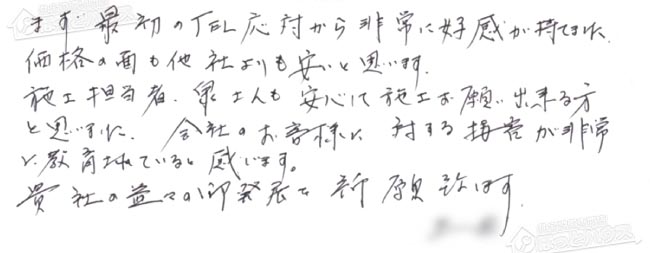 まず最初のTEL応対から非常に好感が持てました。
価格の面も他社よりも安いと思います。
施工担当者、泉さんも安心して施工お願い出来る方
と思いました。会社のお客様に対する接客が非常
に教育されていると感じます。
貴社の益々の御発展を祈願致します。